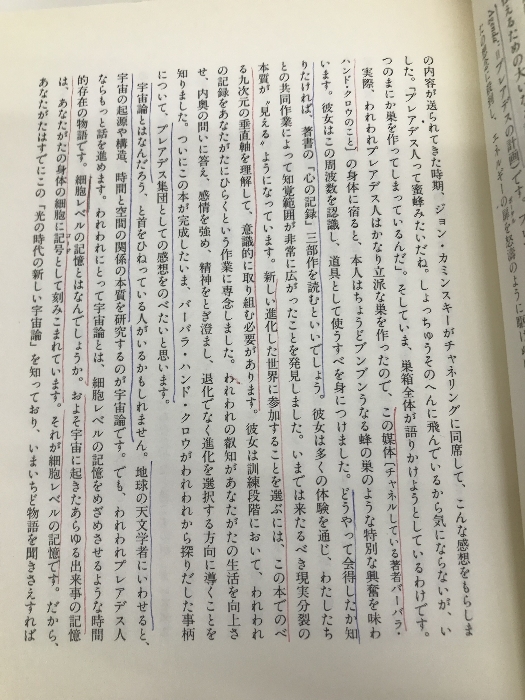 の内容が送られてきた時期、ジョン・カミンスキーがチャネリングに同席して、こんな感想をもらしま
した。「プレアデス人って蜜蜂みたいだね。しょっちゅうそのへんに飛んでいるから気にならないが、い
つのまにか巣を作ってしまっているんだ。そしていま、巣箱全体が語りかけようとしているわけです。
実際、われわれプレアデス人はかなり立派な巣を作ったので、この媒体〔チャネルしている著者バーバラ・
ハンド・クロウのこと〕の身体に宿ると、本人はちょうどブンブンうなる蜂の巣のような特別な興奮を味わ
います。彼女はこの周波数を認識し、道具として使うすべを身につけました。どうやって会得したか知
りたければ、著書の『心の記録』三部作を読むといいでしょう。彼女は多くの体験を通じ、わたしたち
との共同作業によって知覚範囲が非常に広がったことを発見しました。いまでは来たるべき現実分裂の
本質が〝見える〟ようになっています。新しい進化した世界に参加することを選ぶには、この本でのべ
る九次元の垂直軸を理解して、意識的に取り組む必要があります。彼女は訓練段階において、われわれ
の記録をあなたがたにひらくという作業に専念しました。われわれの叡知があなたがたの生活を向上さ
せ、内奥の問いに答え、感情を強め、精神をとぎ澄まし、退化でなく進化を選択する方向に導くことを
知りました。ついにこの本が完成したいま、バーバラ・ハンド・クロウがわれわれから探りだした事柄
について、プレアデス集団としての感想をのべたいと思います。
宇宙論とはなんだろう、と首をひねっている人がいるかもしれません。地球の天文学者にいわせると、
宇宙の起源や構造、時間と空間の関係の本質を研究するのが宇宙論です。でも、われわれプレアデス人
ならもっと話を進めます。われわれにとって宇宙論とは、細胞レベルの記憶をめざめさせるような時間
的存在の物語です。細胞レベルの記憶とはなんでしょうか。およそ宇宙に起きたあらゆる出来事の記憶
は、あなたがたの身体の細胞に記号として刻みこまれています。それが細胞レベルの記憶です。だから、
あなたがたはすでにこの『光の時代の新しい宇宙論』を知っており、いまいちど物語を聞きさえすれば